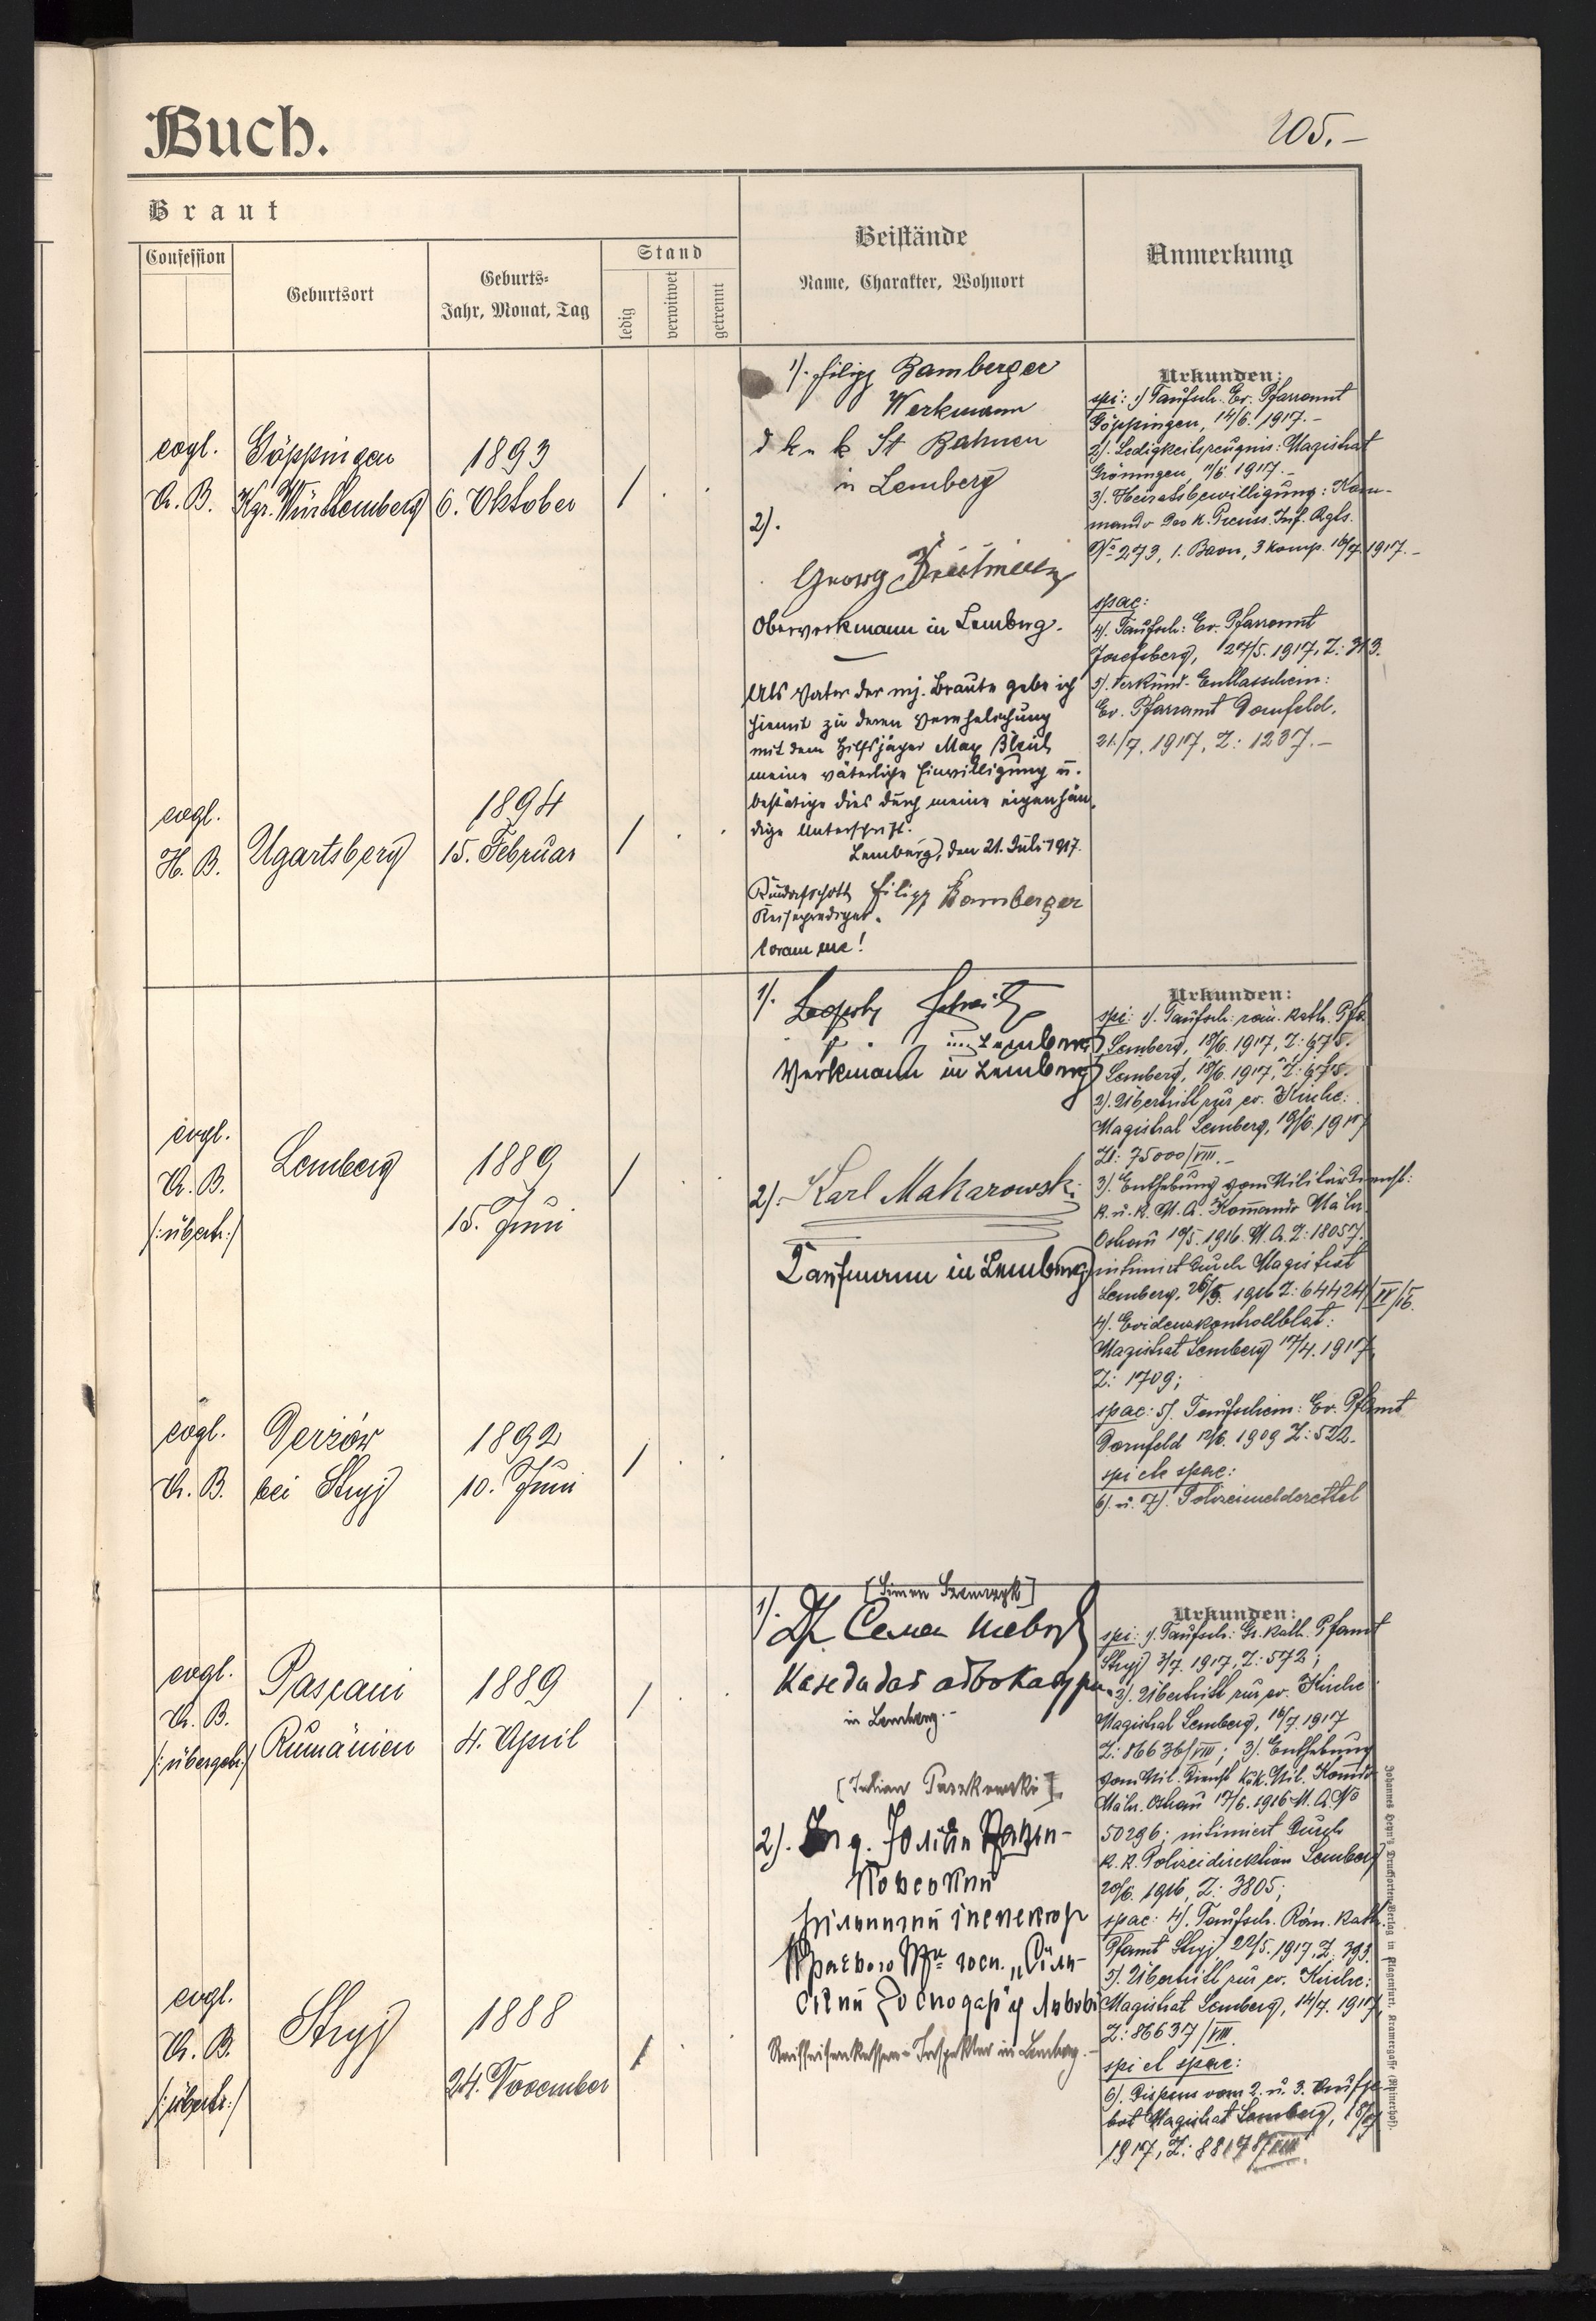 Buch.
205.–
Braut
Confession
Geburtsort
Geburts-
Jahr, Monat, Tag
Stand
ledig
verwitwet
getrennt
Beistände
Name, Charakter, Wohnort
Anmerkung
evgl.
A. B.
Göppingen
Kgr. Württemberg
1893
6. Oktober
evgl.
H. B.
Ugartsberg
1894
15. Februar
1). Filipp Bamberger
Werkmann
d k. k. St Bahnen
in Lemberg
2).
Georg
Oberwerkmann in Lemberg.
Als Vater der mj. Braut gebe ich
hiemit zu deren Verehelichung
mit dem Hilfsjäger Max
meine väterliche Einwilligung u.
bestätige dies durch meine eigenhän-
dige Unterschrift.
Lemberg, den 21. Juli 1917.
Filipp Bamberger
Reiseprediger.
coram me!
Urkunden:
spi: 1) Taufsch. Ev. Pfarramt
Göppingen, 14/6. 1917.–
2). Ledigkeitszeugnis: Magistrat
Gröningen 11/6. 1917.–
3). Heiratsbewilligung: Kom-
mando des K. Preuss. Inf. Rgts.
No 273, 1. Baon, 3 Komp. 16/7. 1917.–
spae:
4). Taufsch: Ev. Pfarramt
Josefsberg, 27/5. 1917, Z: 313.
5). Verkünd- Entlasschein:
Ev. Pfarramt Dornfeld,
21/7. 1917, Z: 1237.–
evgl.
A. B.
/:übertr:/
Lemberg
1889
15. Juni
evgl.
A. B.
Derżów
bei Stryj
1892
10. Juni
1).
in Lemberg
Werkmann in Lemberg
2). Karl Makarowski
Kaufmann in Lemberg
Urkunden:
spi: 1). Taufsch: röm. kath. Pfa.
Lemberg, 18/6. 1917, Z: 675.
Lemberg, 18/6. 1917, Z: 675.
2). Übertritt zur ev. Kirche:
Magistrat Lemberg, 19/6. 1917
Zl: 75000/VIII.–
3). Enthebung vom Militärdienst:
k. u. k. M. A. Kommando Mähr.
Ostrau 10/5. 1916. M. A. Z: 18057.
intimiert durch Magistrat
Lemberg, 26/5. 1916 Z: 64424/IV/16.
4). Evidenzkontrollblat:
Magistrat Lemberg 17/4. 1917
Z: 1709;
spae: 5). Taufschein: Ev. Pfamt
Dornfeld 12/6. 1909 Z: 522.
spi et spae:
6). u. 7). Polizeimeldezettel
evgl.
A. B.
/:übergetr:/
Pascani
Rumänien
1889
4. April
evgl.
A. B.
/:übertr:/
Stryj
1888
24. November
1). Др Семен
адвокатури
in Lemberg.–
[Julian Paszkowski]
2). Інд. Юліян
Raiffeisenkassen-Inspektor in Lemberg.–
Urkunden:
spi: 1). Taufsch: Gr. kath. Pfamt
Stryj 3/7. 1917, Z: 572;
2). Übertritt zur ev. Kirche
Magistrat Lemberg, 16/7. 1917
Z: 86636/VIII; 3). Enthebung
vom Mil. Dienst K.u.k. Mil. Komdo
Mähr. Ostrau 17/6. 1916 M. A. No
50296; intimiert durch
k. k. Polizeidirektion Lemberg
20/6. 1916, Z: 3805;
spae: 4). Taufsch. Röm. kath.
Pfamt Stryj, 22/5. 1917, Z: 393.
5). Übertritt zur ev. Kirche:
Magistrat Lemberg, 14/7. 1917,
Z: 86637/VIII.
spi et spae:
6). Dispens vom 2. u. 3. Aufge-
bot Magistrat Lemberg, 18/7
1917, Z:
Johannes Heyn's Drucksorten-Verlag in Klagenfurt, Kramergasse